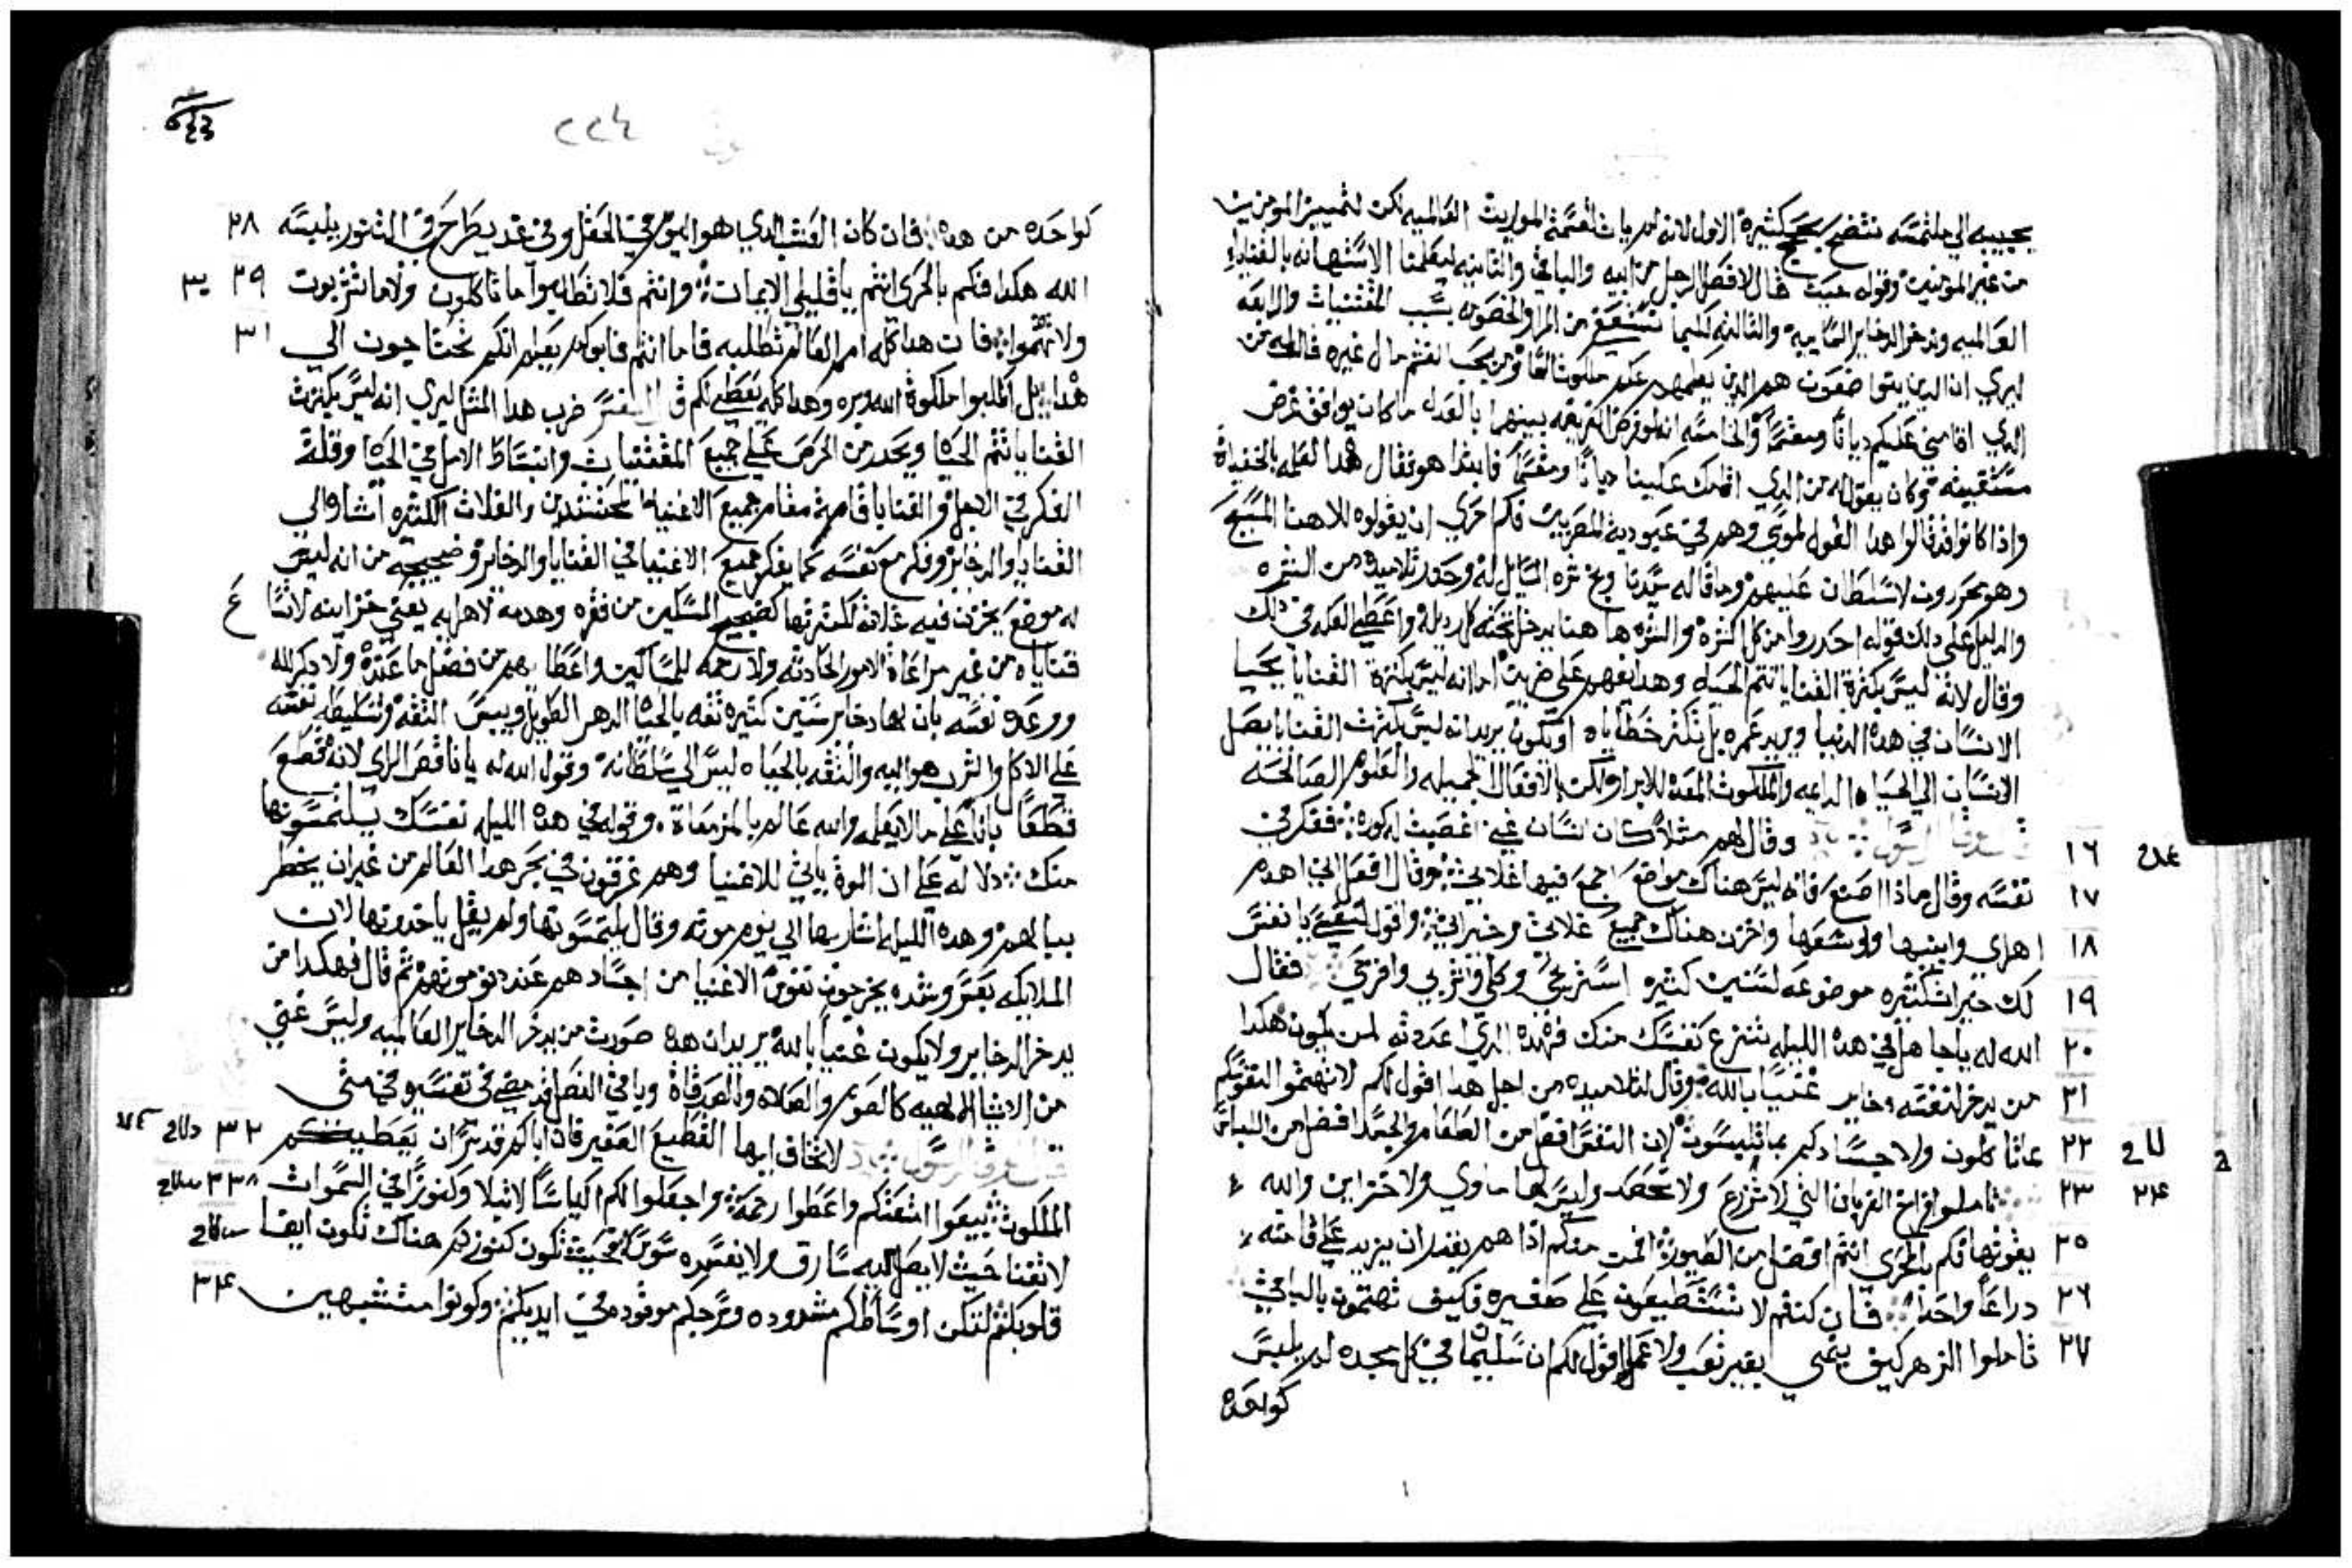 يجيبه الي ملتمسه تتضح بحجج كثيرة الاول لانه لم يات لقسمة المواريث العالميه لكن لتمييز المومنين
من غير المومنين وقوله حيث قال لافصل الرجل من ابيه والباقي والثانيه ليعلمنا الاستهانه بالقنايا
العالميه وندخر الدخاير السماييه والثالثه لكيما نستعفي من المرا والخصومه بسبب المقتنيات والرابعه
ليري ان الدين يتواضعون هم الدين
الدي اقامني عليكم ديانا ومقسما والخامسه انه لو فرض التفرقه بينهما بالعدل ما كان يوافق غرض
مستقيمه وكان يقول له من الدي اقامك علينا ديانا ومقسما فابتدا هو فقال هدا لعلمه بالخفيات
وادا كانوا قد قالوا هدا القول لموسي وهم في عبودية المصريين فكم احري ان يقولوه للاهنا المسيح
وهم محررون لا سلطان عليهم وما قاله سيدنا وبخ شره السايل له وحدر تلاميده من الشره
والدليل علي دلك قوله احدروا من كل الشره والشره ها هنا يدخل تحته كل رديله واعطي العله في دلك
وقال لانه ليس بكثرة القنايا تتم الحياه وهدا يفهم علي ضربين اما انه ليس بكثرة القنايا يحيا
الانسان في هده الدنيا ويزيد عمره بل تكثر خطاياه او يكون يريد انه ليس بكثرت القنايا يصل
الانسان الي الحياه الدايمه والملكوت المعده للابرار لكن بالافعال الجميله والعلوم الصالحه
وقال لهم مثلا كان انسان غني اخصبت له كوره ففكر في
١٦
نفسه وقال ماذا اصنع فانه ليس هناك مواضع اجمع فيها غلاتي وقال افعل اني اهدم
١٧
اهراي وابنيها واوسعها واخزن هناك جميع غلاتي وخيراتي واقول لنفسي يا نفس
١٨
لك خيرات كثيره موضوعه لسنين كثيره استريحي وكلي واشربي وافرحي فقال
١٩
الله له يا جاهل في هده الليله تنتزع نفسك منك فهده الدي اعددته لمن يكون هكدا
٢٠
من يدخر لنفسه دخاير غنيا بالله وقال لتلاميده من اجل هدا اقول لكم لا تهتموا لنفوسكم
٢١
بما تاكلون ولا لاجسادكم بما تلبسون لان النفس افضل من الطعام والجسد افضل من اللباس
٢٢
تاملوا فراخ الغربان التي لا تزرع ولا تحصد وليس لها ماوي ولا خزاين والله
٢٣
٢٤
يقوتها فكم بالحري انتم افضل من الطيور من منكم ادا هم يقدر ان يزيد علي قامته
٢٥
دراعا واحدا فان كنتم لا تستطيعون علي صغيره فكيف تهتمون بالباقي
٢٦
تاملوا الزهر كيف ينمي بغير تعب ولا عمل اقول لكم ان سليمان في كل مجده لم يلبس
٢٧
كواحده
٢٢٤
كواحده من هده فان كان العشب الدي هو اليوم في الحقل وفي غد يطرح في التنور يلبسه
٢٨
الله هكدا فكم بالحري انتم يا قليلي الايمان وانتم فلا تطلبوا ما تاكلون ولا ما تشربون
٢٩
ولا تهتموا فان هدا كله امم العالم تطلبه فاما انتم فابوكم يعلم انكم تحتاجون الي
٣١
هدا بل اطلبوا ملكوة الله وبره وهدا كله يعطي لكم ضرب هدا المثل ليري انه ليس بكثرت
القنايا تتم الحياه ويحدر من الحرص علي جميع المقتنيات وانبساط الامل في الحياه وقلة
الفكر في الاجل والقنايا قامه مقام جميع الاغنيا المحتشدين والغلات الكثيره اشار الي
القنايا والدخاير وفكر مع نفسه كما يفكر جميع الاغنيا في القنايا والدخاير وضجيجه من انه ليس
له موضع يخزن فيه غلاته لكثرتها كضجيج المسكين من فقره وهدمه لاهرايه يعني خزاينه لاتساع
قناياه من غير مراعاة الامور الحادثه ولا رحمه للمساكين واعطايهم من فضل ما عنده ولا دكر لله
ووعده نفسه بان لها دخاير سنين كثيره ثقه بالحياه الدهر الطويل وبيس الثقه وتسليطه نفسه
علي الاكل والشرب هو اليه والثقه بالحياه ليس الي سلطانه وقول الله له يا ناقص الراي لانه قطع
قطعا باتا علي ما لا يعلمه والله عالم بالمزمعات وقوله في هده الليله نفسك يلتمسونها
منك دلاله علي ان الموة ياتي للاغنيا وهم غرقون في بحر هدا العالم من غير ان يخطر
ببالهم وهده الليله اشار بها الي يوم موته وقال يلتمسونها ولم يقل ياخدونها لان
الملايكه بعسر وشده يخرجون نفوس الاغنيا من اجسادهم عند دنو موتهم ثم قال فهكدا من
يدخر الدخاير ولا يكون غنيا بالله يريد ان هده صورت من يدخر الدخاير العالميه وليس غني
من الاشيا الالهيه كالصوم والصلاه والصدقاة وباقي الفصل قد مضي في تفسير في متي
لا تخاف ايها القطيع الصغير فان اباكم قد سر ان يعطيكم
٣٢
الملكوت بيعوا امتعتكم واعطوا رحمة واجعلوا لكم اكياسا لا تبلا وكنوزا في السموات
٣٣
لا تفنا حيث لا يصل اليه سارق ولا يفسده سوس فحيث تكون كنوزكم هناك تكون ايضا
قلوبكم لتكن اوساطكم مشدوده وسرجكم موقوده في ايديكم وكونوا متشبهين
٣٤